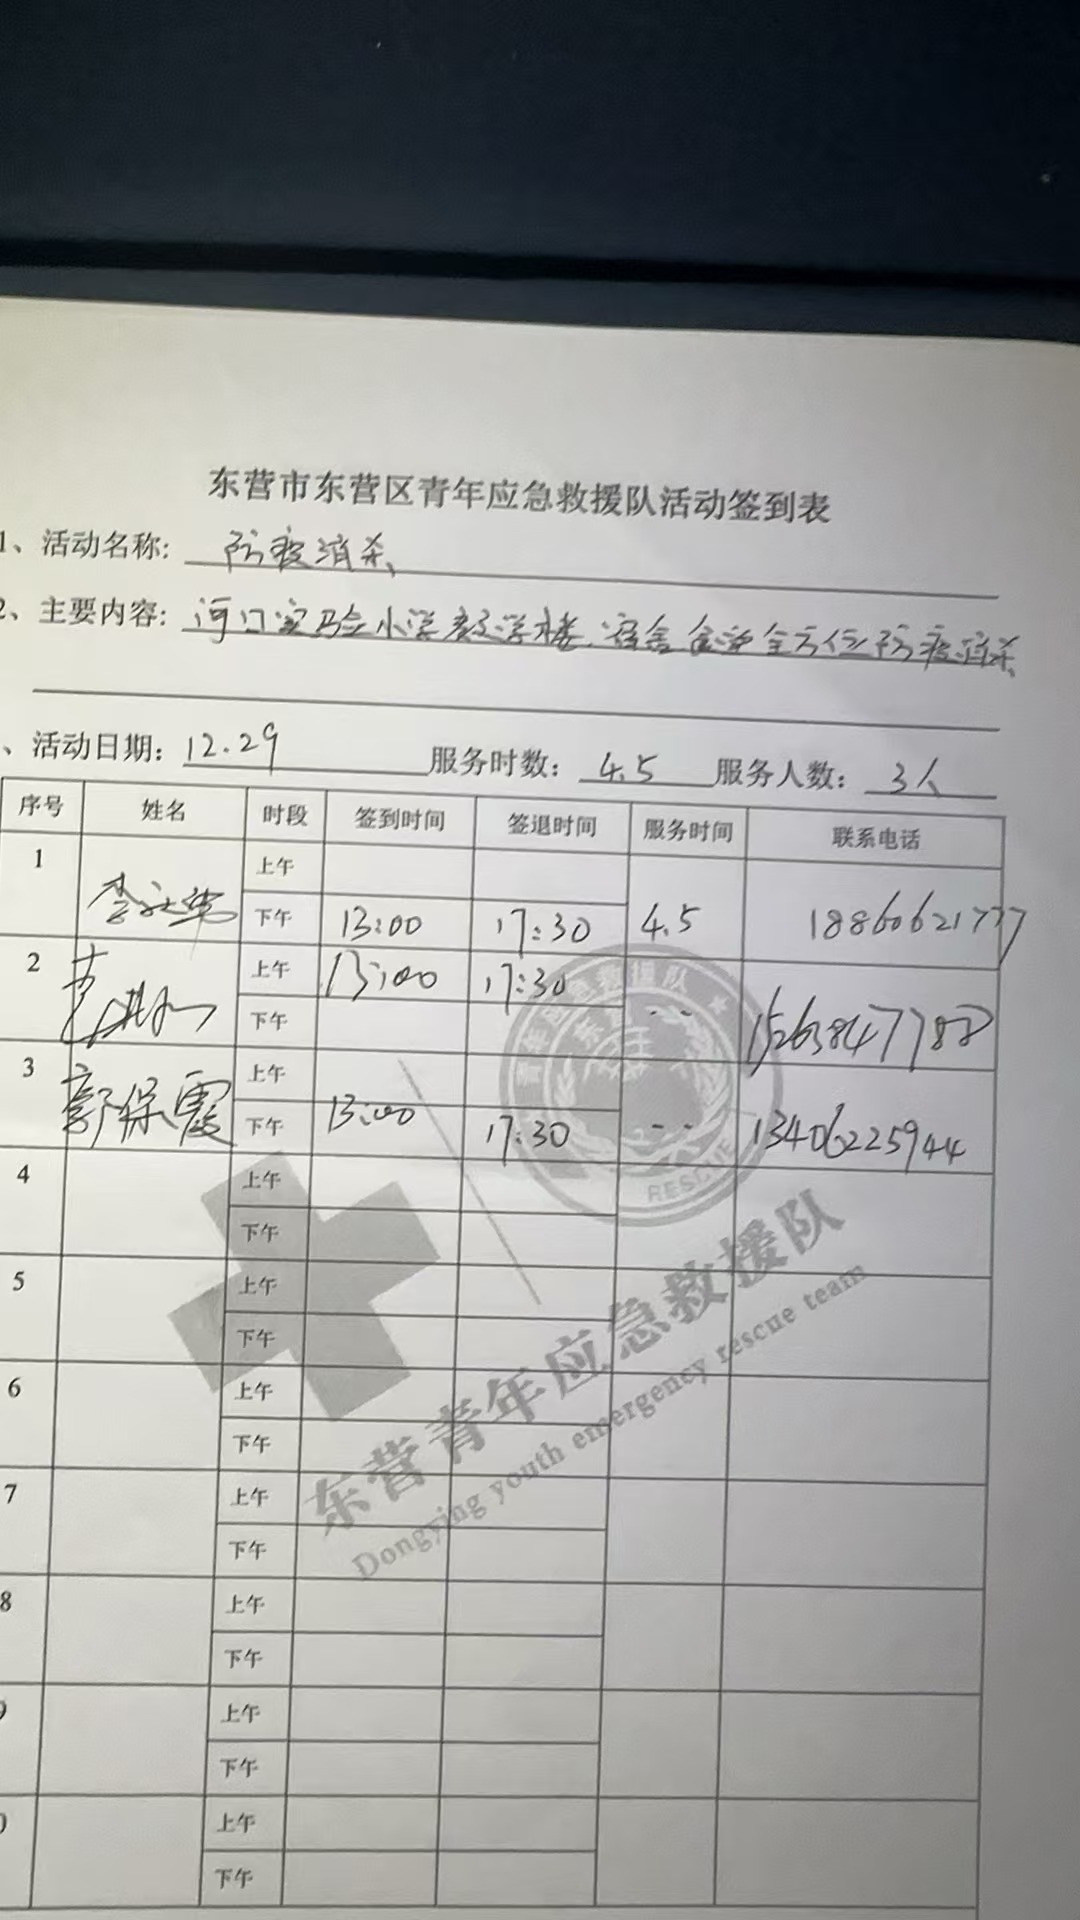 东营市东营区青年应急救援队活动签到表
1、活动名称: 防疫消杀
2、主要内容: 河口实验小学教学楼、宿舍食堂全方位防疫消杀
、活动日期: 12.29 服务时数: 4.5 服务人数: 3人
序号 姓名 时段 签到时间 签退时间 服务时间 联系电话
1 上午
下午 13:00 17:30 4.5 18860621777
2 上午 13:00 17:30
下午 15263847788
3 郭保霞 上午
下午 13:00 17:30 13406225944
4 上午
下午
5 上午
下午
6 上午
下午
7 上午
下午
8 上午
下午
上午
下午
上午
下午
青年应急救援队
RESCUE
东营青年应急救援队
Dongying youth emergency rescue team